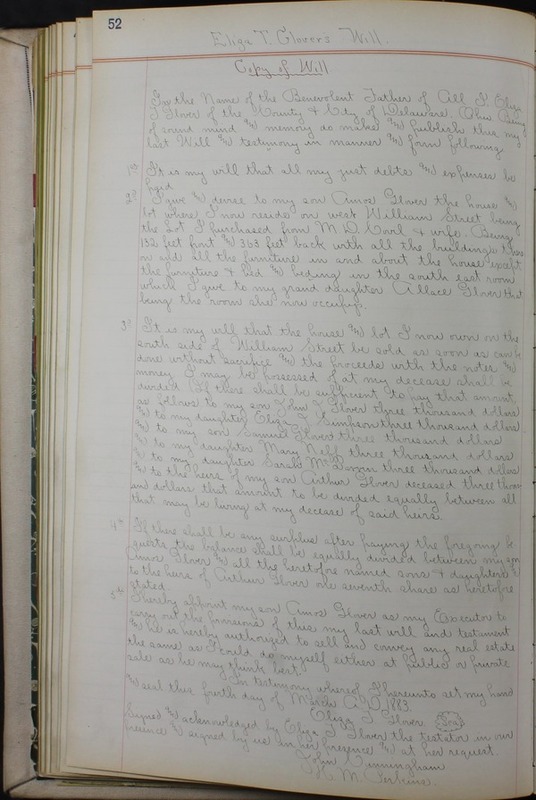 52
Eliza T. Glovers Will.
Copy of Will
In the Name of the Benevolent Father of All I Eliza
T Glover of the County & City of Delaware Ohio Being
of sound mind and memory do make and publish this my
last Will and testimony in manner and form following
1st It is my will that all my just debts and expenses be
paid
2d I give and devise to my son Amos Glover the house and
lot where I now reside on west William Street being
the Lot I purchased from M D Covel & wife. Being
132 feet front and 363 feet back with all the buildings there
on and all the furniture in and about the house except
the furniture & bed and beding in the south east room
which I give to my grand daughter Allace Glover that
being the room she now occupies.
3d It is my will that the house and lot I now own on the
south side of William Street be sold as soon as can be
done without sacrifice and the proceeds with the notes and
money I may be possessed of at my decease shall be
divided if there shall be sufficient to pay that amount
as follows to my son John Glover three thousand dollars
and to my daughter Eliza J Simpson three thousand dollars
and to my son Samuel Glover three thousand dollars
and to my daughter Mary Neff three thousand dollars
and to my daughter Sarah three thousand dollars
and to the heirs of my son Arthur Glover deceased three thous
and dollars that amount to be divided equally between all
that may be living at my decease of said heirs.
4th If there shall be any surplus after paying the foregoing be
quests the balance shall be equally divided between my son
Amos Glover and all the heretofore named sons & daughters &
to the heirs of Arthur Glover one seventh share as heretofore
stated
5th I hereby appoint my son Amos Glover as my Executor to
carry out the provisions of this my last will and testament
and he is hereby authorized to sell and convey any real estate
the same as I could do myself either at public or private
sale as he may think best.
In testimony whereof I hereunto set my hand
and seal this fourth day of March A.D. 1883.
Eliza T Glover Seal
Signed and acknowledged by Eliza T Glover the testator in our
presence and signed by us in her presence and at her request.
John Cunningham
M. Perkins.